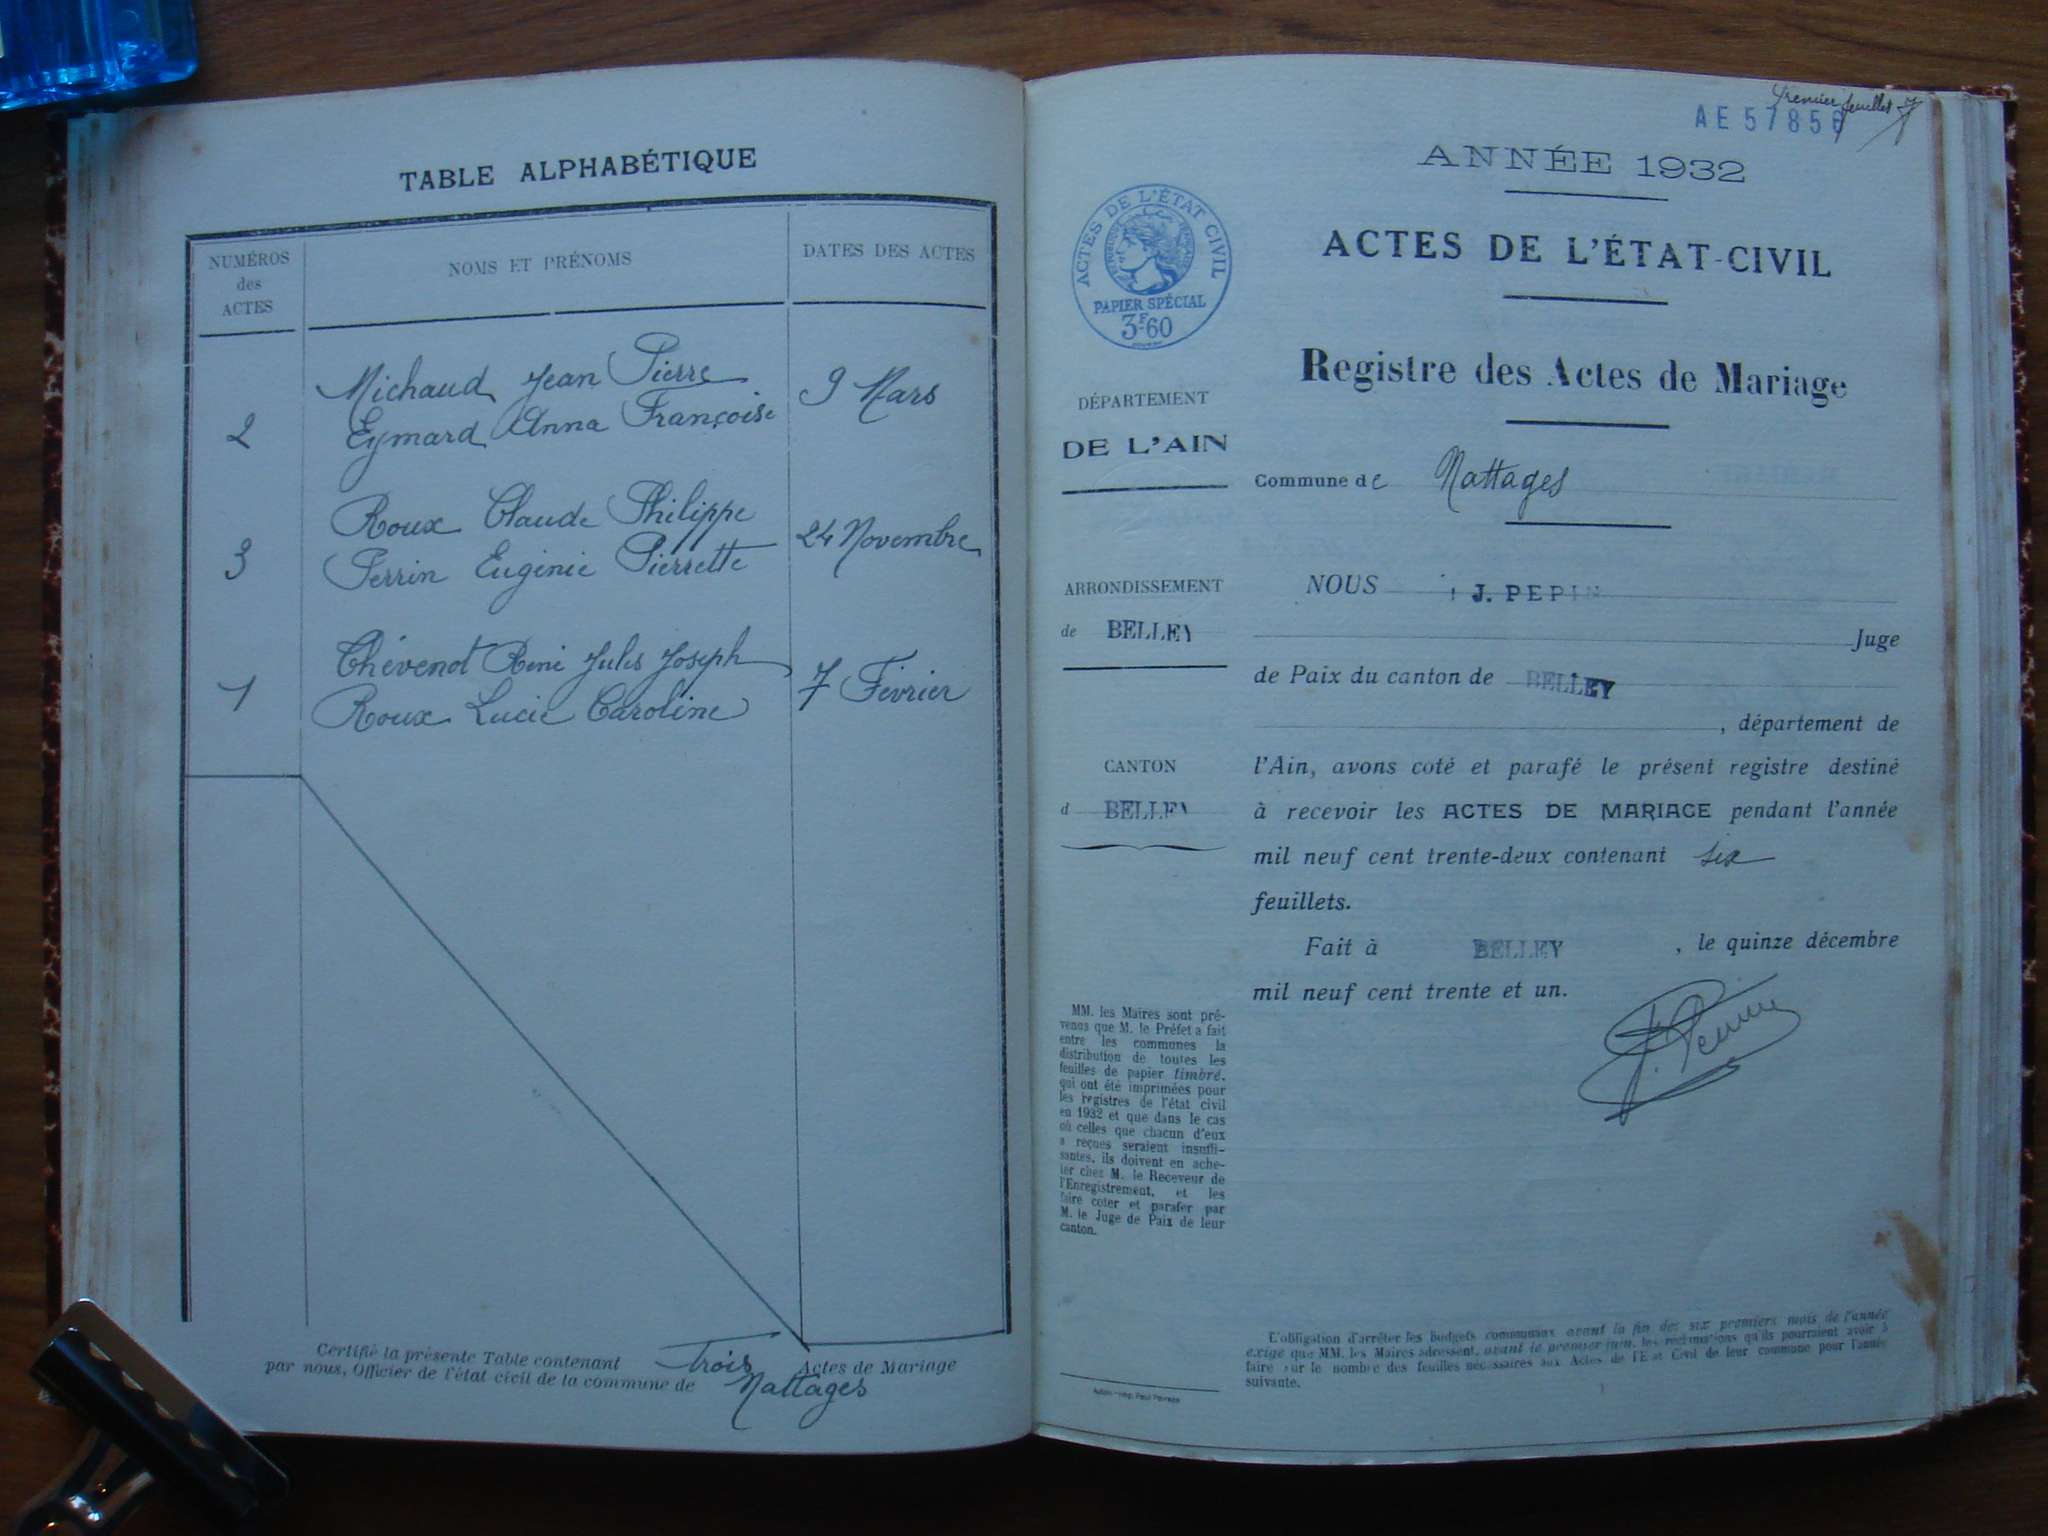 TABLE ALPHABÉTIQUE
NUMÉROS
des
ACTES
NOMS ET PRÉNOMS
DATES DES ACTES
Michaud Jean Pierre
2 Eymard Anna Françoise 9 Mars
Roux Claude Philippe
3 Perrin Eugénie Pierrette 24 Novembre
Thévenot René Jules Joseph
1 Roux Lucie Caroline 7 Février
Certifié la présente Table contenant Trois Actes de Mariage
par nous, Officier de l'état civil de la commune de Nattages
Premier feuillet
AE 57856
ANNÉE 1932
ACTES DE L'ÉTAT CIVIL
PAPIER SPÉCIAL
3F60
ACTES DE L'ÉTAT-CIVIL
Registre des Actes de Mariage
DÉPARTEMENT
DE L'AIN
Commune de Nattages
ARRONDISSEMENT
de BELLEY
CANTON
d BELLEY
NOUS J. PEPIN
Juge
de Paix du canton de BELLEY
, département de
l'Ain, avons coté et parafé le présent registre destiné
à recevoir les ACTES DE MARIAGE pendant l'année
mil neuf cent trente-deux contenant six
feuillets.
Fait à BELLEY, le quinze décembre
mil neuf cent trente et un.
J. Pepin
MM. les Maires sont pré-
venus que M. le Préfet a fait
entre les communes la
distribution de toutes les
feuilles de papier timbré,
qui ont été imprimées pour
les registres de l'état civil
en 1932 et que dans le cas
où celles que chacun d'eux
a reçues seraient insuffi-
santes, ils doivent en ache-
ter chez M. le Receveur de
l'Enregistrement, et les
faire coter et parafer par
M. le Juge de Paix de leur
canton.
L'obligation d'arrêter les budgets communaux avant la fin des six premiers mois de l'année
exige que MM. les Maires adressent, avant le premier juin, les réclamations qu'ils pourraient avoir à
faire sur le nombre des feuilles nécessaires aux Actes de l'Etat Civil de leur commune pour l'année
suivante.